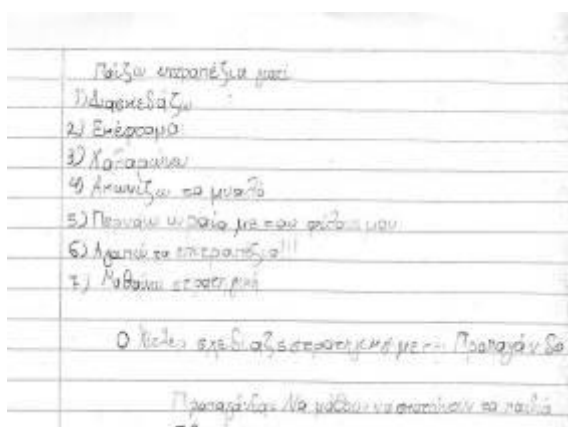 Παίζω επιτραπέζια γιατί
1) Διασκεδάζω
2)
3) Χαλαρώνω
4) Ακονίζω το μυαλό
5) Περνάω ωραία με τους φίλους μου
6) Αγαπώ τα επιτραπέζια!!!
7) Μαθαίνω στρατηγική
Ο σχεδιαζε στρατηγικά με... Προπαγάνδα
Προπαγάνδα: Να μάθουν να σκοτώνουν τα παιδιά